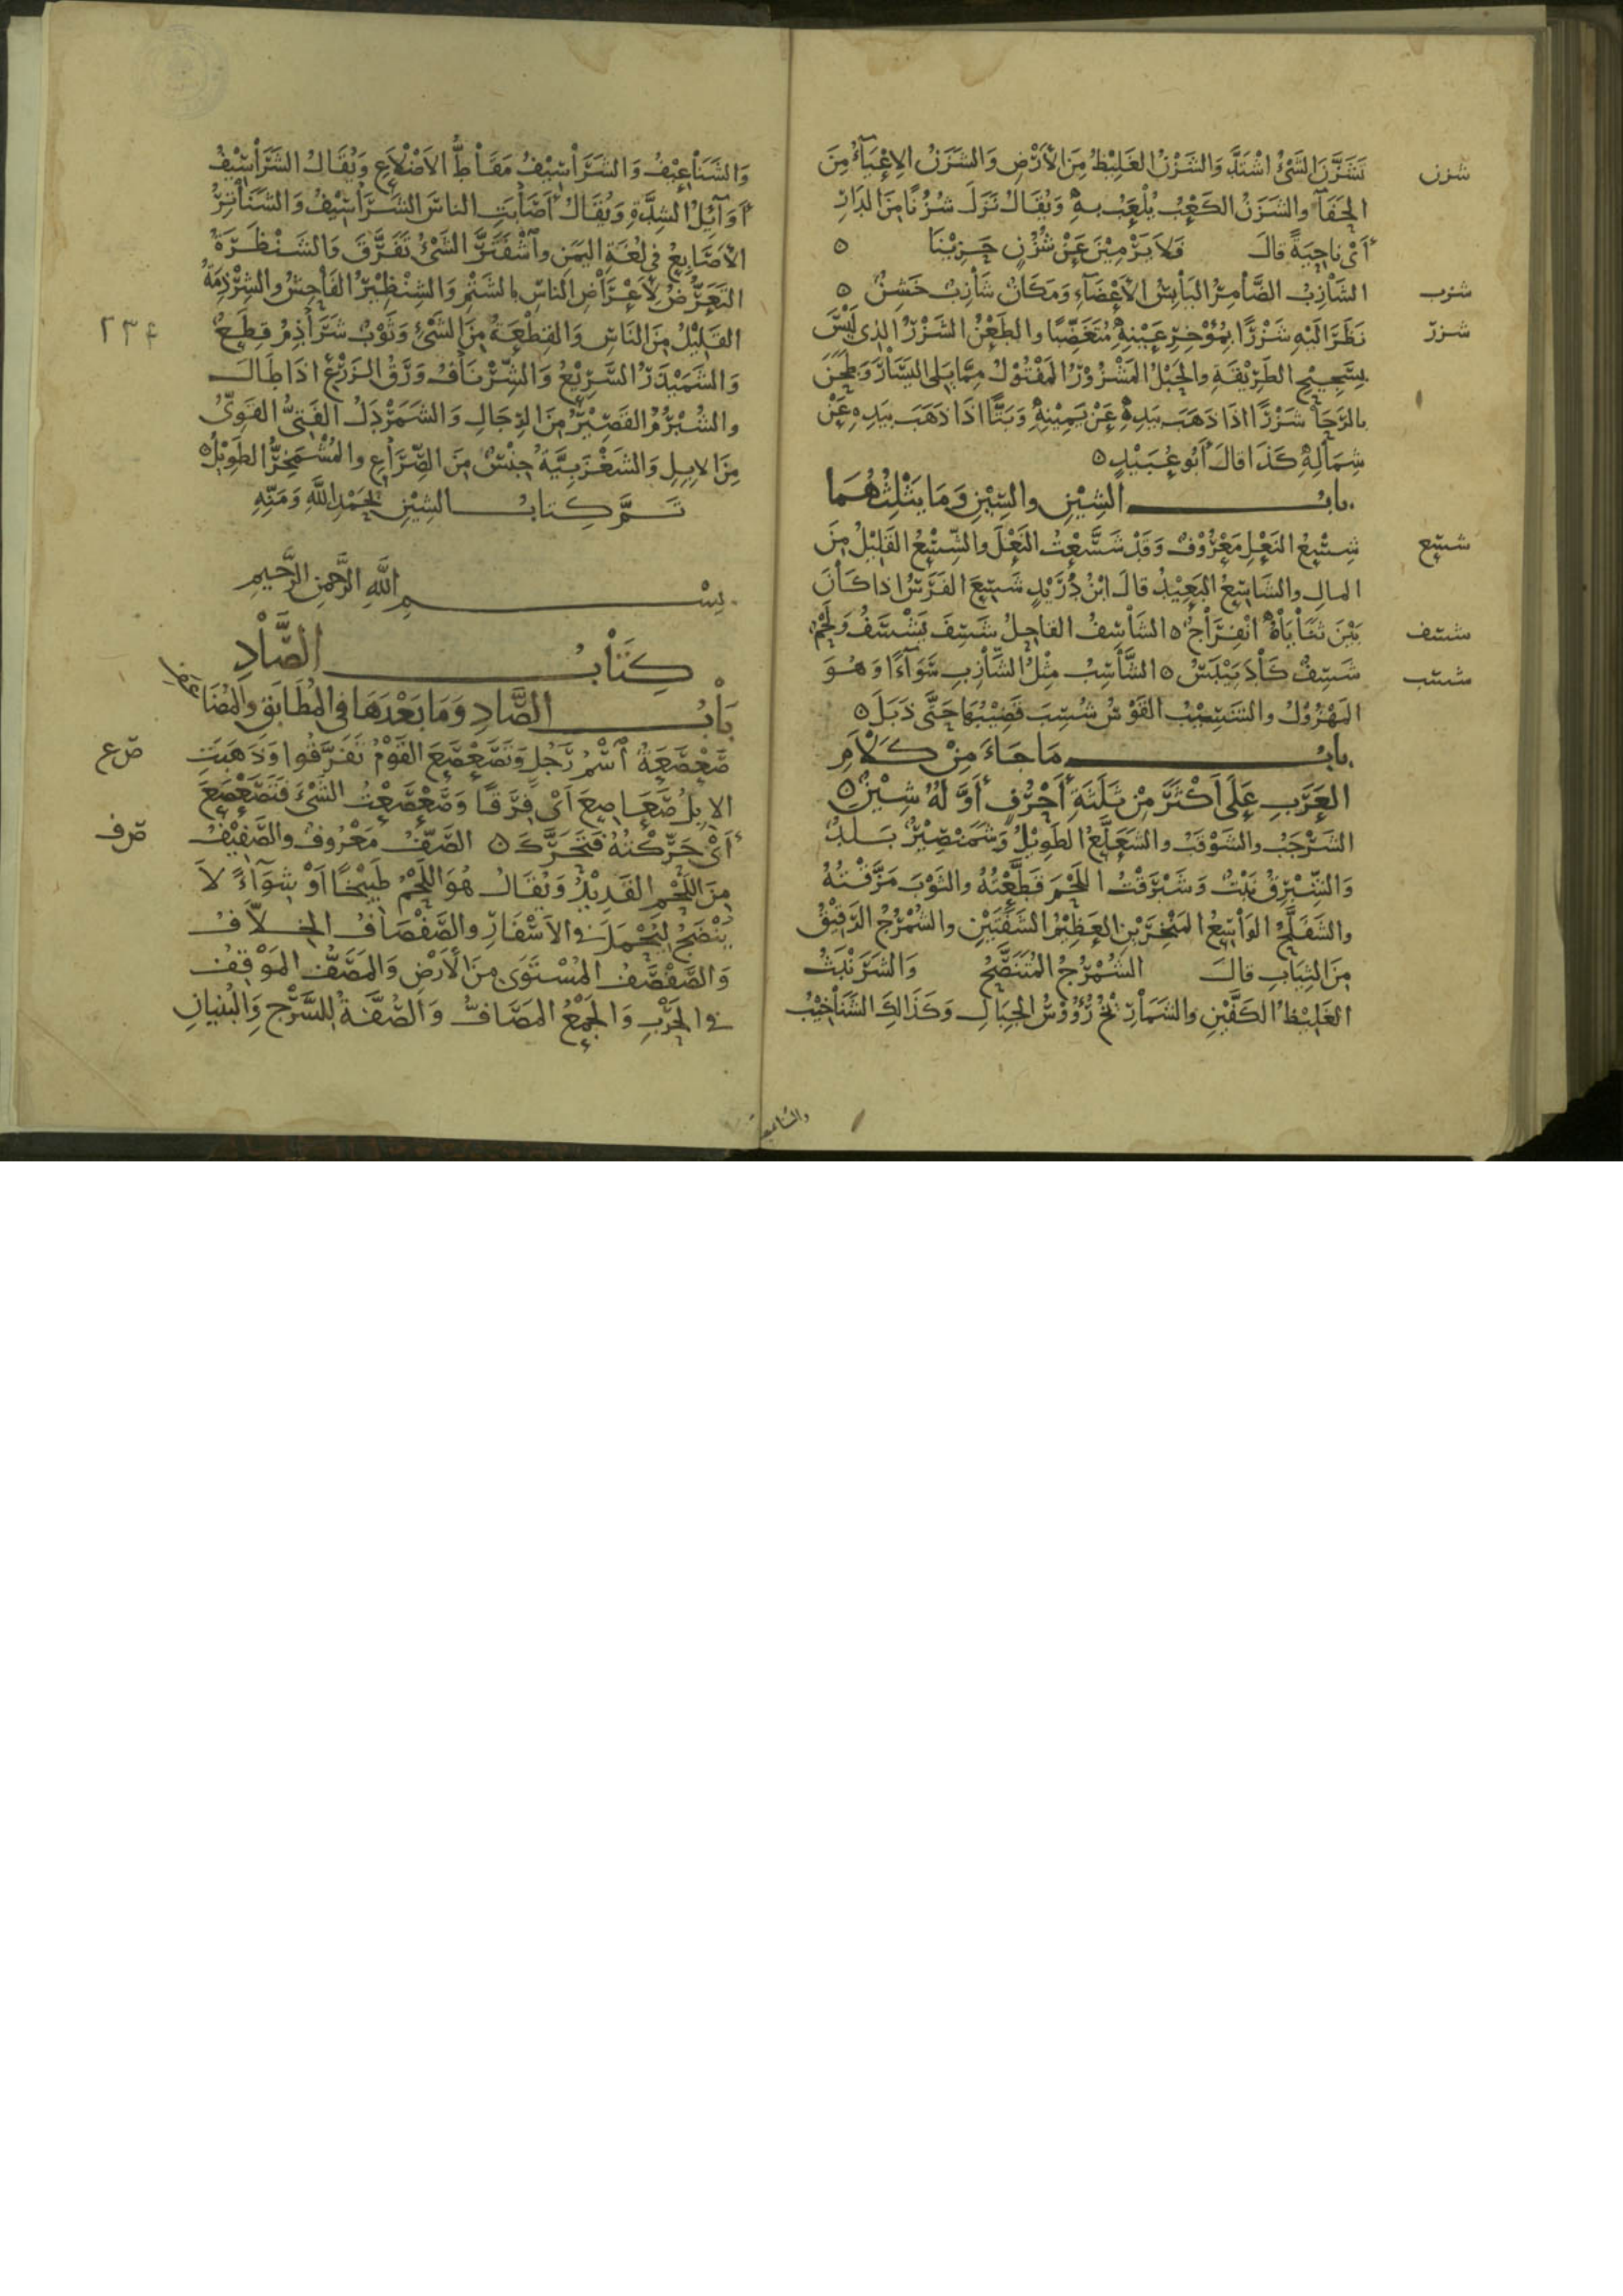 شزن
تَشَزَّنَ الشَّيْءُ اشْتَدَّ وَالشَّزْنُ الغَلِيْظُ مِنَ الأَرْضِ وَالشَّزَنُ الإِعْيَآءُ مِنَ
الحَفَآ والشَزَنُ الكَعْبُ يُلْعَبُ بِهِ وَيُقَالُ نَزَلَ شُزُنًا مِنَ الدَارِ
أَيْ نَاحِيَةً قالَ فَلَا يَرْمِيْنَ عَنْ شُزُنٍ حَزِيْنَا ٥
شزب
الشَّاْزِبُ الضَّاْمِرُ اليَاْبِسُ الأَعْضَآءِ وَمَكَانٌ شَاْزِبٌ خَشِنٌ ٥
شزر
نَظَرَ الَيْهِ شَزْرًا بِمُؤْخِرِ عَيْنِهِ مُتَغَضِّبًا والطَعْنُ الشَزْرُ الذِي لَيْسَ
بِسَّحِيْحِ الطَرِيْقَةِ والحَبْلُ المَشْزُوْرُ المَفْتُوْلُ مِمَّا يَلِى اليَسَاْرَ وَطَحَنَ
بالرَّحَا شَزْرًا اذَا ذَهَبَ بِيَدِهِ عَنْ يَمِيْنِهِ وَبَتًّا اذَا ذَهَبَ بِيَدِهِ عَنْ
شِمَالِهِ كَذَا قالَ أَبُو عُبَيْدٍ ٥
بابُ الشِيْنِ والسِّيْنِ وَمَا يَثْلِثُهُمَا
شسع
شِسْعُ النَعْلِ مَعْرُوْفٌ وَقَدْ شَسَّعْتُ النَعْلَ والشِّسْعُ القَلِيْلُ مِنَ
المالِ والشَاسِعُ البَعِيْدُ قالَ ابْنُ دُرَيْدٍ شَسِعَ الفَرَسُ اذا كَاْنَ
شسف
بَيْنَ ثَنَاْيَاْهُ انْفِرَاْجٌ ٥ الشَاْسِفُ القاحِلُ شَسَفَ يَشْسُفُ وَلَحْمٌ
شسب
شَسِيْفٌ كَاْدَ يَيْبَسُ ٥ الشَّاْسِبُ مِثْلُ الشَّاْزِبِ سَوَآءًا وَهُوَ
المَهْزُوْلُ والشَسِيْبُ القَوْسُ شُسِبَ قَضِيْبُهَا حَتَّى ذَبَلَ ٥
بابُ مَا جَاءَ مِنْ كَلَاْمِ
العَرَبِ عَلَى أَكْثَرَ مِنْ ثَلَثَةِ أَحْرُفٍ أَوَّلُهُ شِيْنٌ ٥
الشَرْجَبُ والشَوْقَبُ والشَعَلَّعُ الطَوِيْلُ وَشَمَنْصِيْرُ بَلَدٌ
وَالشِّبْرِقُ نَبْتٌ وَشَبْرَقْتُ اللَحْمَ قَطَّعْتُهُ والثَوْبَ مَزَّقْتُهُ
والشَفَلَّحُ الوَاْسِعُ المَنْخِرَيْنِ العَظِيْمُ الشَفَتَيْنِ والشُمْرُجُ الرَقِيْقُ
مِنَ الثِيَابِ قالَ الشُمْرُجُ المُتَنَصَّحُ وَالشَرَنْبَثُ
الغَلِيْظُ الكَفَّيْنِ والشَمَاْرِيْخُ رُؤُوْسُ الجِبَالِ وَكَذَالِكَ الشَنَاْخِيْبُ
والشناعيف
وَالشَنَاْعِيْفُ وَالشَرَاْسِيْفُ مَقَاْطُّ الأَضْلَاْعِ وَيُقَالُ الشَرَاْسِيْفُ
أَوَآئِلُ الشِدَّةِ وَيُقَالُ أَصَاْبَتِ الناسَ الشَرَاْسِيْفُ وَالشَنَاْتِرُ
الأَصَابِعُ فِي لُغَةِ اليَمَنِ واشْفَتَرَّ الشَيْءُ تَفَرَّقَ وَالشَنْظَرَةُ
التَعَرُّضُ لأَعْرَاْضِ الناسِ بالشَتْمِ وَالشِنْظِيْرُ الفَاْحِشُ والشِرْذِمَةُ
٢٣٤
القَلِيْلُ مِنَ النَاسِ وَالقِطْعَةُ مِنَ الشَيْءِ وَثَوْبٌ شَرَاْذِمُ قِطَعٌ
وَالشَمَيْذَرُ السَّرِيْعُ وَالشِّرْنَاْفُ وَرَقُ الزَرْعِ اذَا طَالَ
والشُبْرُمُ القَصِيْرُ مِنَ الرِجَالِ وَالشَمَرْدَلُ الفَتِيُّ القَوِيُّ
مِنَ الإِبِلِ وَالشَغْزَبِيَّةُ جِنْسٌ مِنَ الصِّرَاْعِ والمُشْمَخِرُّ الطَوِيْلُ ٥
تَمَّ كِتابُ الشِيْنِ بِحَمْدِ اللَّهِ وَمَنِّهِ
بِسْمِ اللَّهِ الرَّحْمَنِ الرَّحِيْمِ
كِتَاْبُ الصَّاْدِ
بَاْبُ الصَّادِ وَمَا بَعْدَهَا فِي المُطَابَقِ وَالمُضَاعَفِ
صع
صَعْصَعَةُ اسْمُ رَجُلٍ وَتَصَعْصَعَ القَوْمُ تَفَرَّقُوا وَذَهَبَتِ
الإِبِلُ صَعَاصِعَ أَيْ فِرَقًا وَصَعْصَعْتُ الشَيْءَ فَتَصَعْصَعَ
صف
أَيْ حَرَّكْتُهُ فَتَحَرَّكَ ٥ الصَّفُّ مَعْرُوفٌ والصَّفِيْفُ
مِنَ اللَحْمِ القَدِيْدُ وَيُقَالُ هُوَ اللَحْمُ طَبِيْخًا أَوْ شِوَآءً لَا
يُنْضَجُ لِيُحْمَلَ فِي الأَسْفَارِ والصَّفْصَافُ الخِلَّافُ
وَالصَّفْصَفُ المُسْتَوَى مِنَ الأَرْضِ وَالمَصَفُّ المَوْقِفُ
فِي الحَرْبِ وَالجَمْعُ المَصَافُّ وَالصُّفَّةُ لِلسَّرْجِ وَالبُنْيَانِ